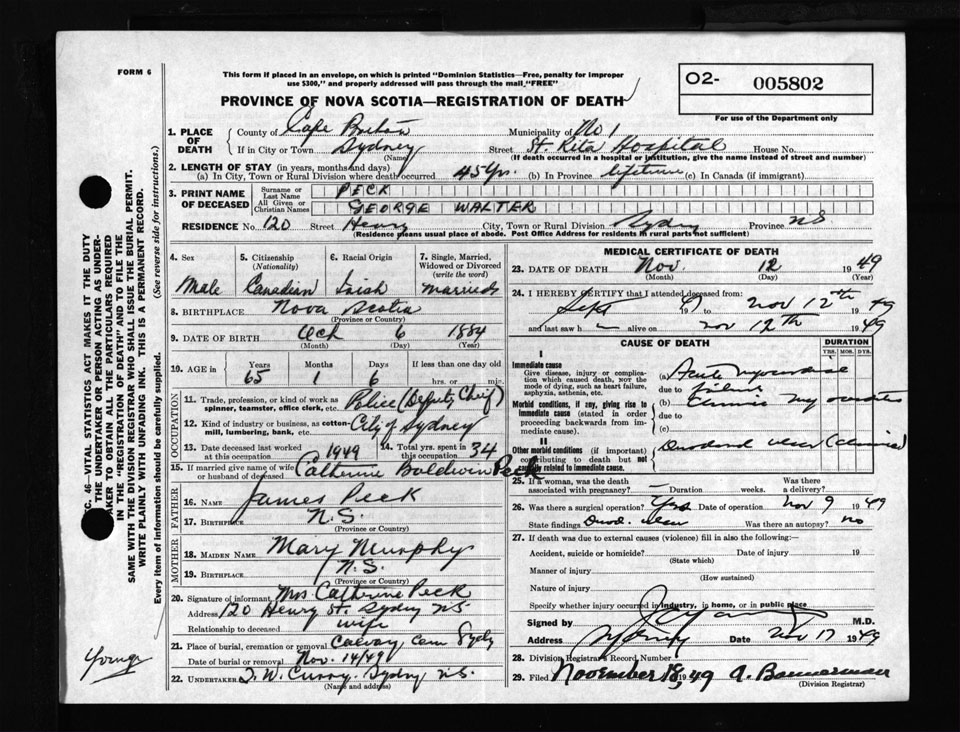 FORM 6
This form if placed in an envelope, on which is printed "Dominion Statistics—Free, penalty for improper
use $300," and properly addressed will pass through the mail "FREE"
O2- 005802
For use of the Department only
PROVINCE OF NOVA SCOTIA—REGISTRATION OF DEATH
1. PLACE OF DEATH
County of Cape Breton Municipality of No 1
If in City or Town Sydney Street St. Rita Hospital House No.
(Name) (If death occurred in a hospital or institution, give the name instead of street and number)
2. LENGTH OF STAY (in years, months and days)
(a) In City, Town or Rural Division where death occurred 45 Yrs. (b) In Province lifetime (c) In Canada (if immigrant)
3. PRINT NAME OF DECEASED
Surname or Last Name PECK
All Given or Christian Names GEORGE WALTER
RESIDENCE No. 120 Street Henry City, Town or Rural Division Sydney Province N.S.
(Residence means usual place of abode. Post Office Address for residents in rural parts not sufficient)
4. Sex 5. Citizenship (Nationality) 6. Racial Origin 7. Single, Married, Widowed or Divorced (write the word)
Male Canadian Irish Married
8. BIRTHPLACE Nova Scotia
(Province or Country)
9. DATE OF BIRTH Oct 6 1884
(Month) (Day) (Year)
10. AGE in Years Months Days If less than one day old
65 1 6 hrs. or min.
OCCUPATION
11. Trade, profession, or kind of work as spinner, teamster, office clerk, etc. Police (Deputy Chief)
12. Kind of industry or business, as cotton-mill, lumbering, bank, etc. City of Sydney
13. Date deceased last worked at this occupation 1949 14. Total yrs. spent in this occupation 34
15. If married give name of wife or husband of deceased Catherine Baldwin Peck
FATHER
16. Name James Peck
17. Birthplace N.S.
(Province or Country)
MOTHER
18. MAIDEN NAME Mary Murphy
19. BIRTHPLACE N.S.
(Province or Country)
20. Signature of informant Mrs Catherine Peck
Address 120 Henry St. Sydney N.S.
Relationship to deceased wife
21. Place of burial, cremation or removal Calvary Cem Sydney
Date of burial or removal Nov. 14/49
22. UNDERTAKER T. W. Curry. Sydney N.S.
(Name and address)
MEDICAL CERTIFICATE OF DEATH
23. DATE OF DEATH Nov. 12 1949
(Month) (Day) (Year)
24. I HEREBY CERTIFY that I attended deceased from:
Sept 19 to Nov 12th 49
and last saw h alive on Nov 12th 1949
CAUSE OF DEATH
DURATION
YRS. MOS. DYS.
I
Immediate cause
Give disease, injury or complication which caused death, NOT the mode of dying, such as heart failure, asphyxia, asthenia, etc.
(a) Acute
due to
Morbid conditions, if any, giving rise to immediate cause (stated in order proceeding backwards from immediate cause).
(b) Chronic
due to
(c)
II
Other morbid conditions (if important) contributing to death but not causally related to immediate cause.
Duodenal ulcer (chronic)
25. If a woman, was the death associated with pregnancy? — Duration weeks. Was there a delivery?
26. Was there a surgical operation? Yes Date of operation Nov 9 1949
State findings Duod. ulcer Was there an autopsy? no
27. If death was due to external causes (violence) fill in also the following:—
Accident, suicide or homicide? Date of injury 19
(State which)
Manner of injury
(How sustained)
Nature of injury
Specify whether injury occurred in industry, in home, or in public place
Signed by M.D.
Address Sydney Date Nov 17 1949
28. Division Registrar's Record Number
29. Filed November 18, 1949 A. Bannerman
(Division Registrar)
SEC. 46—VITAL STATISTICS ACT MAKES IT THE DUTY
OF THE UNDERTAKER OR PERSON ACTING AS UNDERTAKER TO OBTAIN ALL THE PARTICULARS REQUIRED
IN THE "REGISTRATION OF DEATH" AND TO FILE THE
SAME WITH THE DIVISION REGISTRAR WHO SHALL ISSUE THE BURIAL PERMIT.
WRITE PLAINLY WITH UNFADING INK. THIS IS A PERMANENT RECORD.
Every item of information should be carefully supplied. (See reverse side for instructions.)